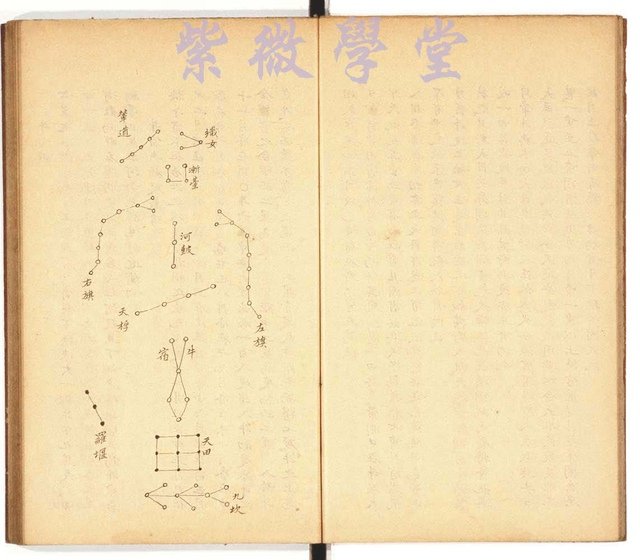 紫微學堂
織女
輦道
漸臺
河鼓
右旗
左旗
天桴
牛
宿
羅堰
天田
九坎